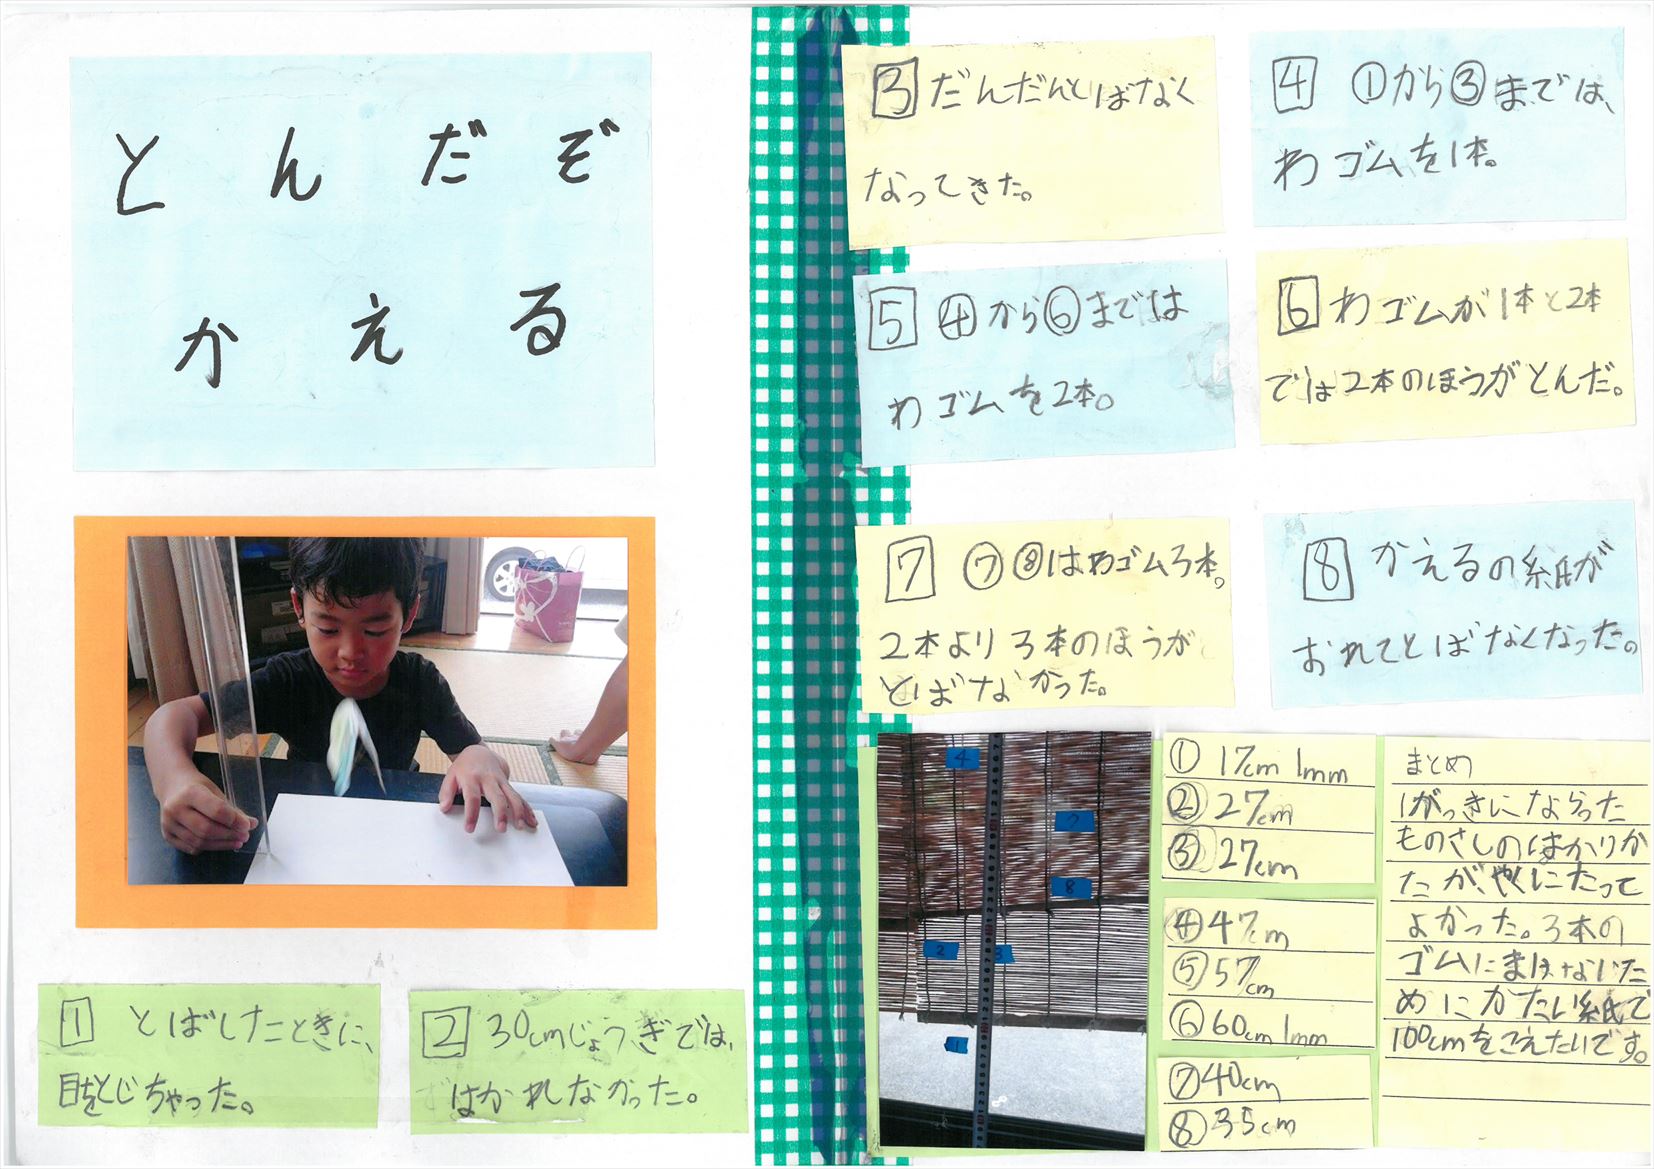 とんだぞ
かえる
1 とばしたときに、
目をとじちゃった。
2 30cmじょうぎでは、
はかれなかった。
3 だんだんとばなく
なってきた。
4 ①から③までは、
わゴムを1本。
5 ④から⑥までは
わゴムを2本。
6 わゴムが1本と2本
では2本のほうがとんだ。
7 ⑦⑧はわゴム3本。
2本より3本のほうが
とばなかった。
8 かえるの紙が
おれてとばなくなった。
4
7
8
2
3
1
① 17cm 1mm
② 27cm
③ 27cm
④ 47cm
⑤ 57cm
⑥ 60cm 1mm
⑦ 40cm
⑧ 35cm
まとめ
1がっきにならった
ものさしのはかりか
たが、やくにたって
よかった。3本の
ゴムにまけないた
めにかたい紙で
100cmをこえたいです。